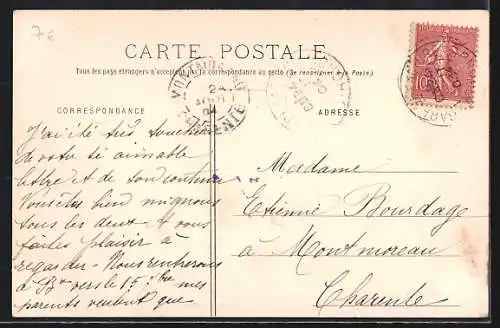 7€
CARTE POSTALE
Tous les pays étrangers n'acceptent pas la correspondance au verso (Se renseigner à la Poste)
CORRESPONDANCE
ADRESSE
J'ai été très touchée
de votre si aimable
lettre et de son contenu
Vous êtes bien mignons
tous les deux et vous
faites plaisir à
regarder. Nous rentrerons
à Bx vers le 15, mes
parents veulent que
Madame
Etienne Bourdage
à Montmoreau
Charente
10